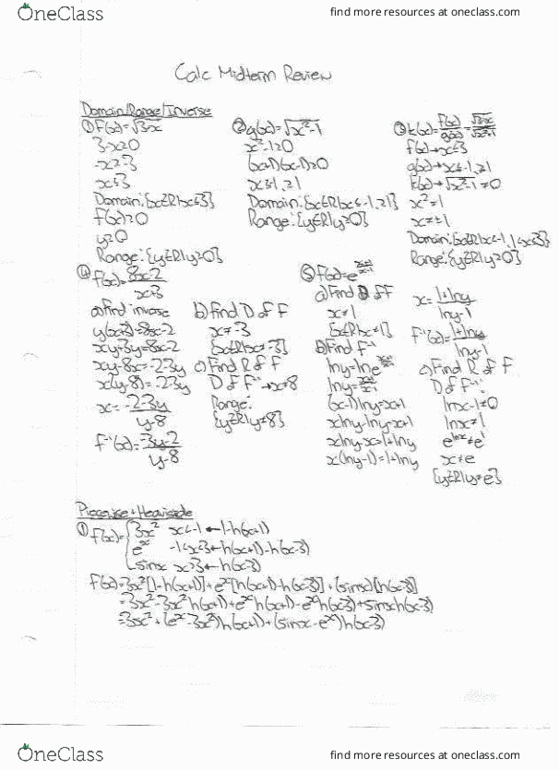 OneClass
find more resources at oneclass.com
Calc Midterm Review
Domain/Range/Inverse
① f(x)=√3-x
3-x≥0
-x≥-3
x≤3
Domain:{xER|x≤3}
f(x)≥0
y≥0
Range:{yER|y≥0}
② g(x)=√x²-1
x²-1≥0
(x+1)(x-1)≥0
x≤-1,≥1
Domain:{xER|x≤-1,≥1}
Range:{yER|y≥0}
③ k(x)=f(x)/g(x)=√3-x/√x²-1
f(x)→x≤3
g(x)→x≤-1,≥1
k(x)→√x²-1≠0
x²≠1
x≠±1
Domain:{xER|x<-1,1<x≤3}
Range:{yER|y≥0}
④ f(x)=8x-2/x+3
a) Find inverse
y(x+3)=8x-2
xy+3y=8x-2
xy-8x=-2-3y
x(y-8)=-2-3y
x=-2-3y/y-8
f⁻¹(x)=-3y-2/y-8
b) Find D of f
x≠-3
{xER|x≠-3}
c) Find R of f
D of f⁻¹→x≠8
Range:
{yER|y≠8}
⑤ f(x)=e^(x+1/x-1)
a) Find D of f
x≠1
{xER|x≠1}
b) Find f⁻¹
lny=lne^(x+1/x-1)
lny=x+1/x-1
(x-1)lny=x+1
xlny-lny=x+1
xlny-x=1+lny
x(lny-1)=1+lny
x=1+lny/lny-1
f⁻¹(x)=1+lny/lny-1
c) Find R of f
D of f⁻¹
lnx-1≠0
lnx≠1
e^lnx≠e¹
x≠e
{yER|y≠e}
Piecewise + Heaviside
① f(x)={3x² x<-1 ←1-h(x+1)
e^x -1<x<3←h(x+1)-h(x-3)
sinx x>3←h(x-3)
f(x)=3x²[1-h(x+1)]+e^x[h(x+1)-h(x-3)]+(sinx)[h(x-3)]
=3x²-3x²h(x+1)+e^xh(x+1)-e^xh(x-3)+sinxh(x-3)
=3x²+(e^x-3x²)h(x+1)+(sinx-e^x)h(x-3)
OneClass
find more resources at oneclass.com